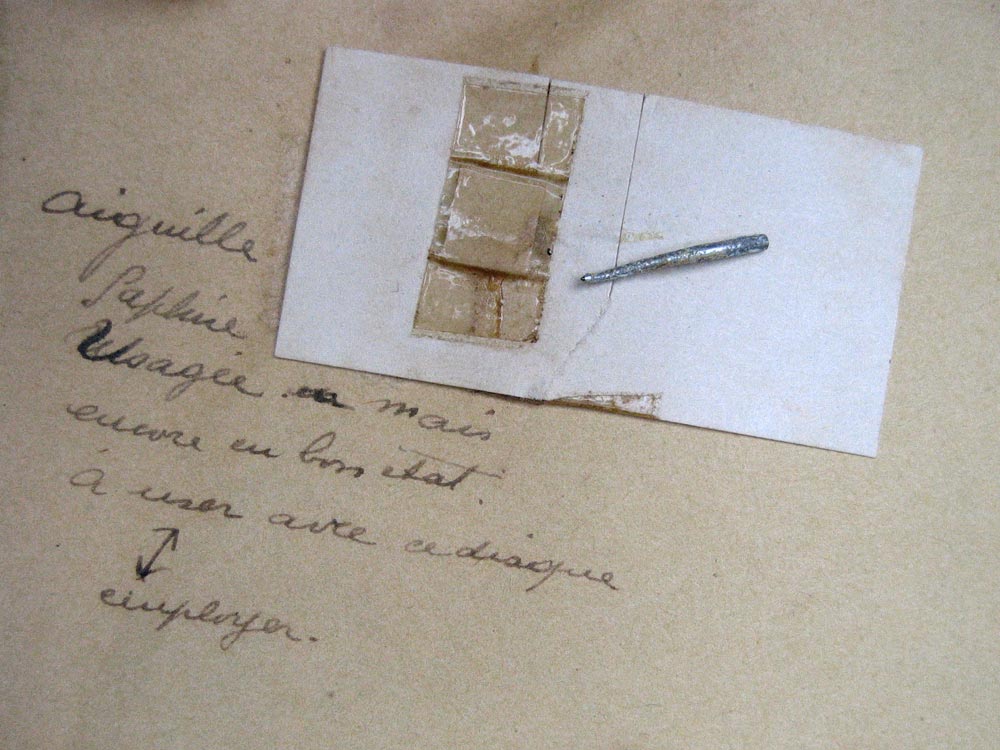 aiguille
Saphire
Usagée mais
encore en bon état.
à user avec ce disque
employer.